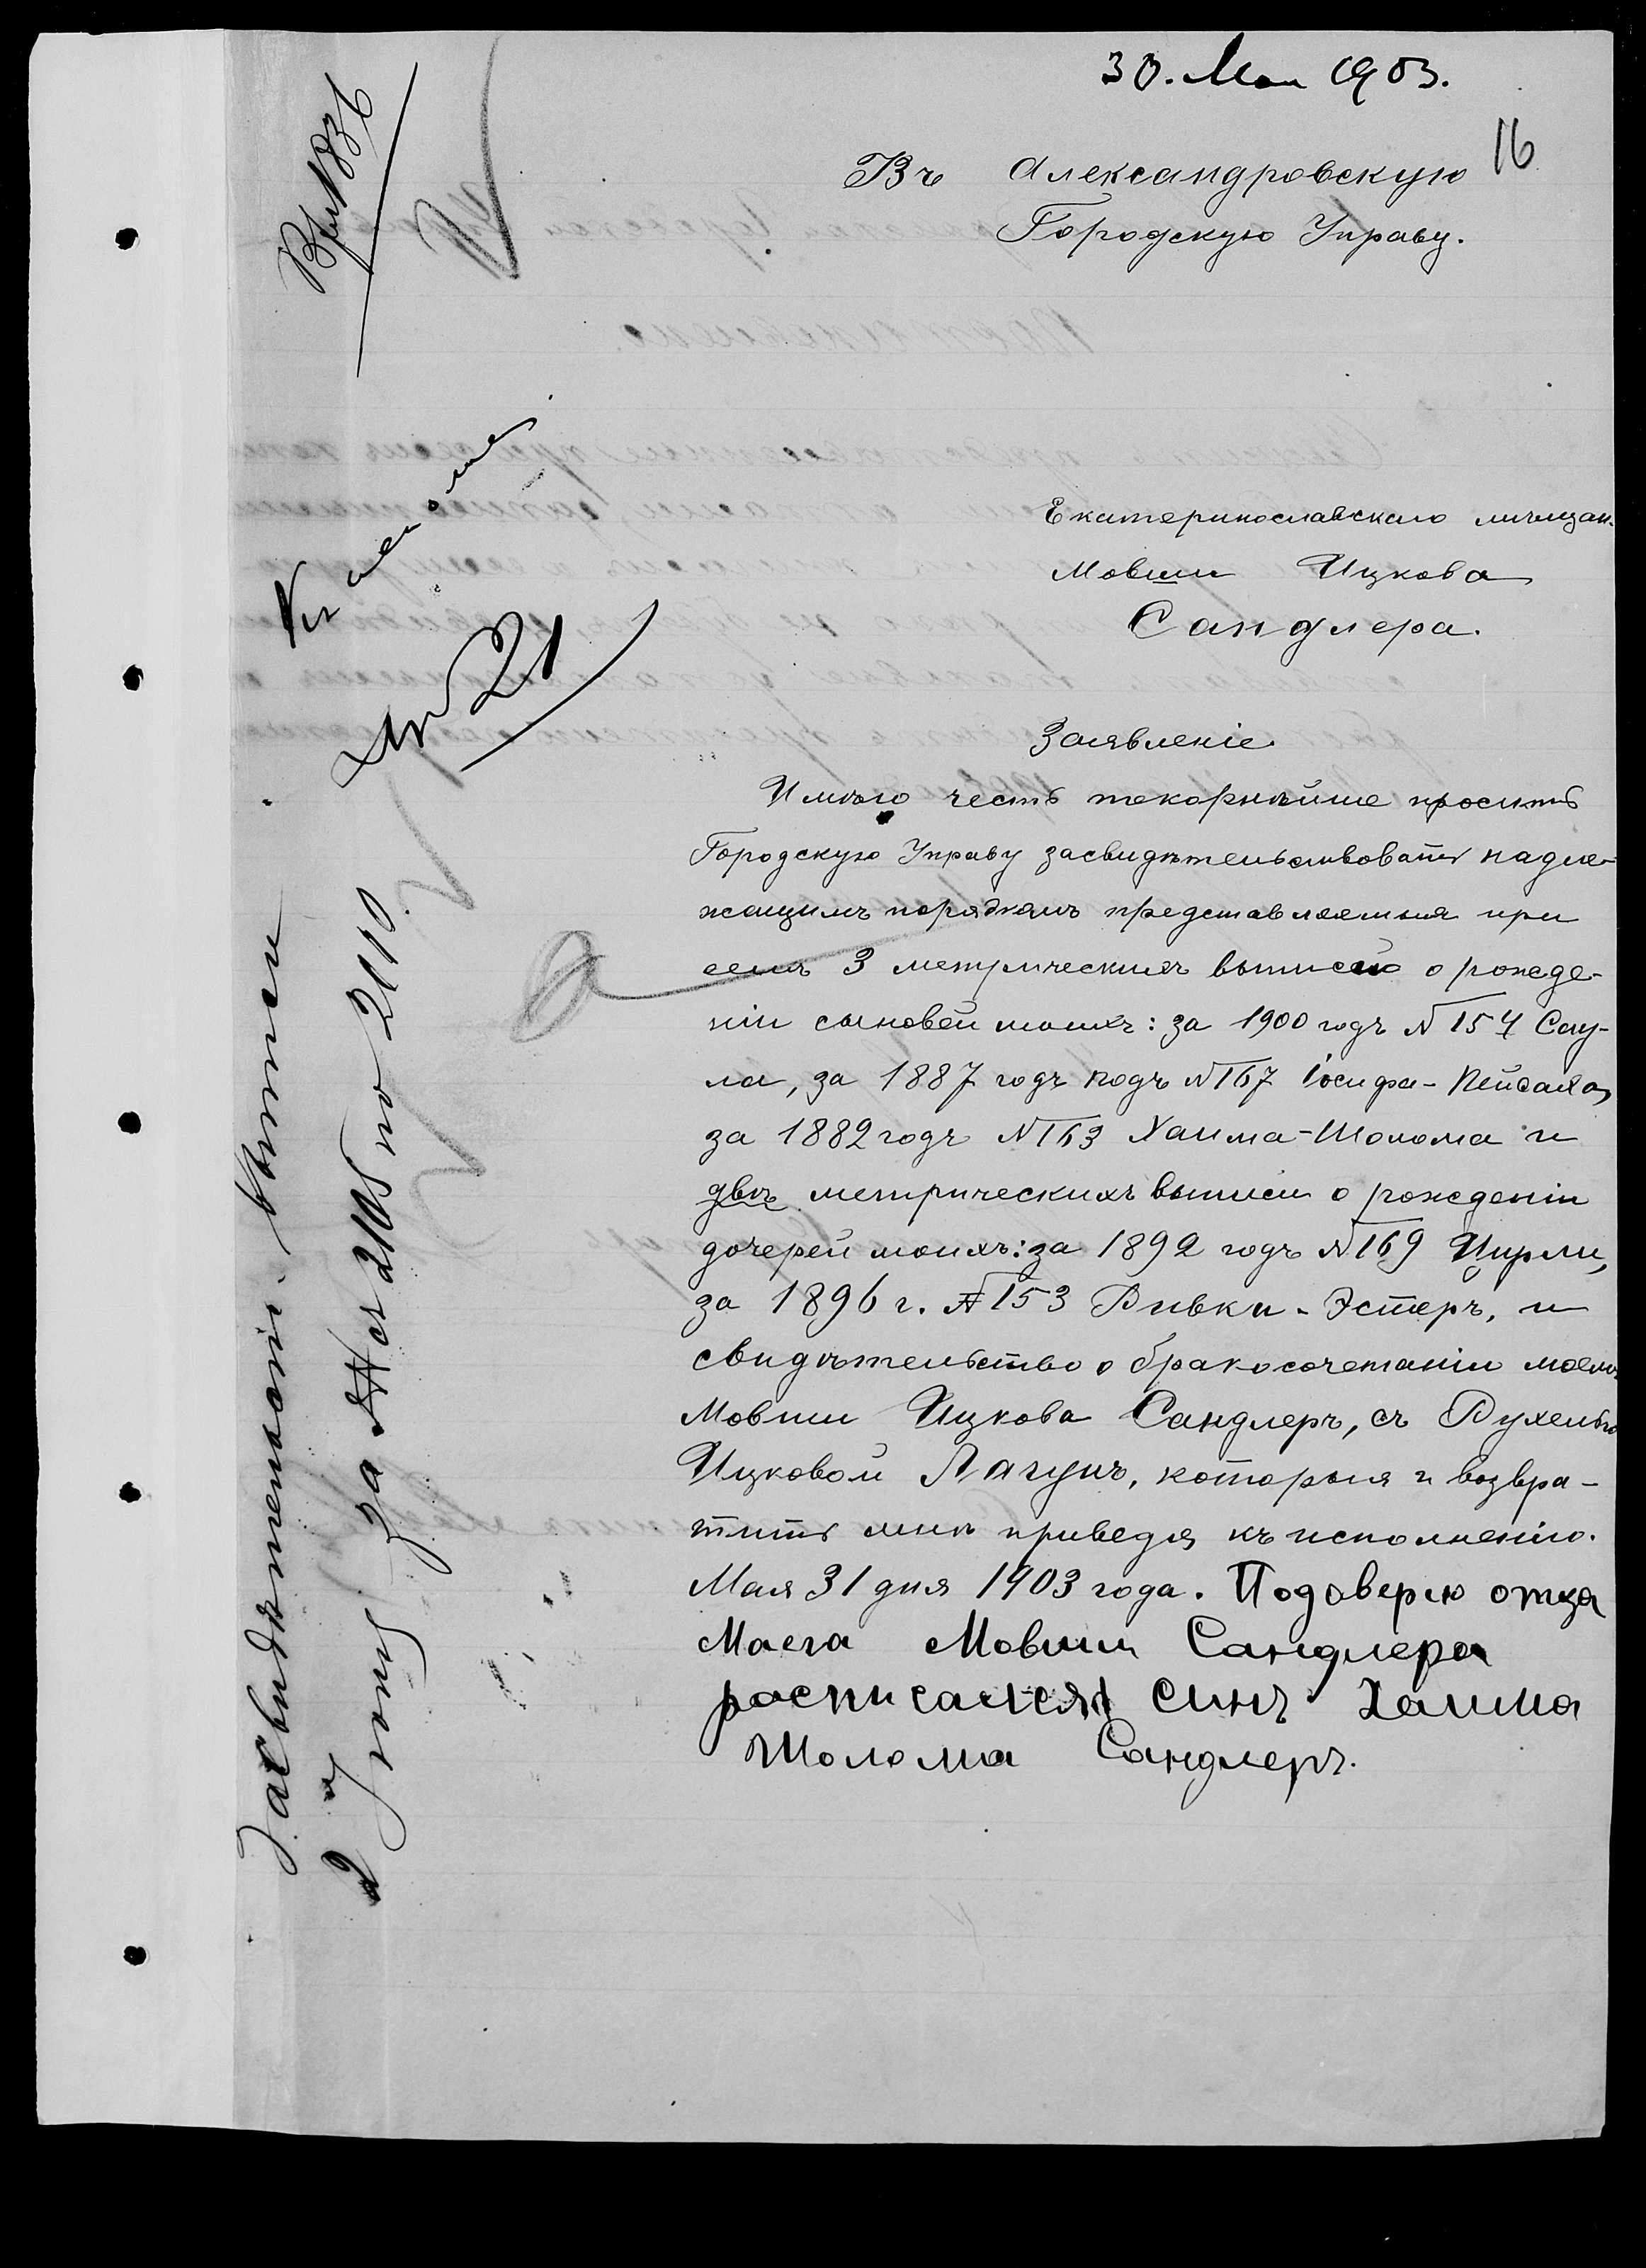 30. Мая 1903.
16
Въ Александровскую
Городскую Управу.
Екатеринославскаго мѣщан.
Мовши Ицкова
Сандлера.
Заявленіе.
Имѣю честь покорнѣйше просить
Городскую Управу засвидѣтельствовать надле-
жащимъ порядкомъ представляемыя при
семъ 3 метрическихъ выписи о рожде-
ніи сыновей моихъ: за 1900 годъ № 154 Сау-
ла, за 1887 годъ подъ № 167 Іосифа-Пейсаха,
за 1882 годъ № 163 Хаима-Шолома и
двѣ метрическихъ выписи о рожденіи
дочерей моихъ: за 1892 годъ № 169 Цирли,
за 1896 г. № 153 Ривки-Эстеръ, и
свидѣтельство о бракосочетаніи моемъ
Мовши Ицкова Сандлеръ, съ Рухелью
Ицковой Лагунъ, которыя и возвра-
тить мнѣ приведя къ исполненію.
Мая 31 дня 1903 года. Подоверію отца
Маега Мовши Сандлера
росписался синъ Хаима
Шолома Сандлеръ.
Вх. 1836
№ 21
Засвидѣтельствованныя выписи
2 Іюня за № съ 2105 по 2110.